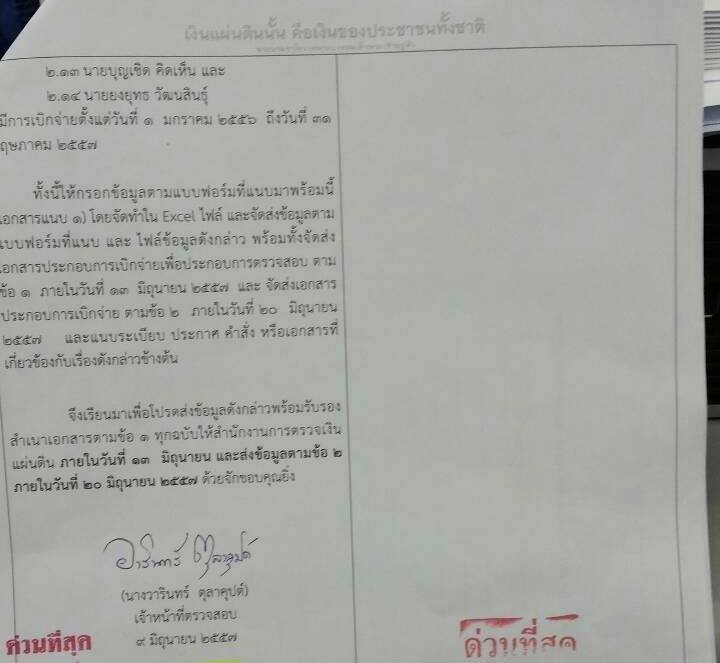 เงินแผ่นดินนั้น คือเงินของประชาชนทั้งชาติ
๒.๑๓ นายบุญเชิด คิดเห็น และ
๒.๑๔ นายยงยุทธ วัฒนสินธุ์
มีการเบิกจ่ายตั้งแต่วันที่ ๑ มกราคม ๒๕๕๖ ถึงวันที่ ๓๑
ฤษภาคม ๒๕๕๗
ทั้งนี้ให้กรอกข้อมูลตามแบบฟอร์มที่แนบมาพร้อมนี้
เอกสารแนบ ๑) โดยจัดทำใน Excel ไฟล์ และจัดส่งข้อมูลตาม
แบบฟอร์มที่แนบ และ ไฟล์ข้อมูลดังกล่าว พร้อมทั้งจัดส่ง
เอกสารประกอบการเบิกจ่ายเพื่อประกอบการตรวจสอบ ตาม
ข้อ ๑ ภายในวันที่ ๑๓ มิถุนายน ๒๕๕๗ และ จัดส่งเอกสาร
ประกอบการเบิกจ่าย ตามข้อ ๒ ภายในวันที่ ๒๐ มิถุนายน
๒๕๕๗ และแนบระเบียบ ประกาศ คำสั่ง หรือเอกสารที่
เกี่ยวข้องกับเรื่องดังกล่าวข้างต้น
จึงเรียนมาเพื่อโปรดส่งข้อมูลดังกล่าวพร้อมรับรอง
สำเนาเอกสารตามข้อ ๑ ทุกฉบับให้สำนักงานการตรวจเงิน
แผ่นดิน ภายในวันที่ ๑๓ มิถุนายน และส่งข้อมูลตามข้อ ๒
ภายในวันที่ ๒๐ มิถุนายน ๒๕๕๗ ด้วยจักขอบคุณยิ่ง
(นางวารินทร์ ตุลาคุปต์)
เจ้าหน้าที่ตรวจสอบ
๙ มิถุนายน ๒๕๕๗
ด่วนที่สุด
ด่วนที่สุด